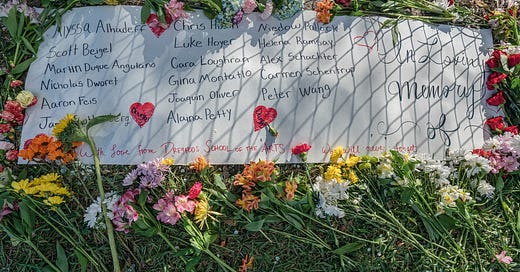 Alyssa Alhadeff
Scott Beigel
Martin Duque Anguiano
Nicholas Dworet
Aaron Feis
Chris Hixon
Luke Hoyer
Cara Loughran
Gina Montalto
Joaquin Oliver
Alaina Petty
Meadow Pollack
Helena Ramsay
Alex Schachter
Carmen Schentrup
Peter Wang
In Loving
Memory
of
With love from Dreyfoos School of the Arts